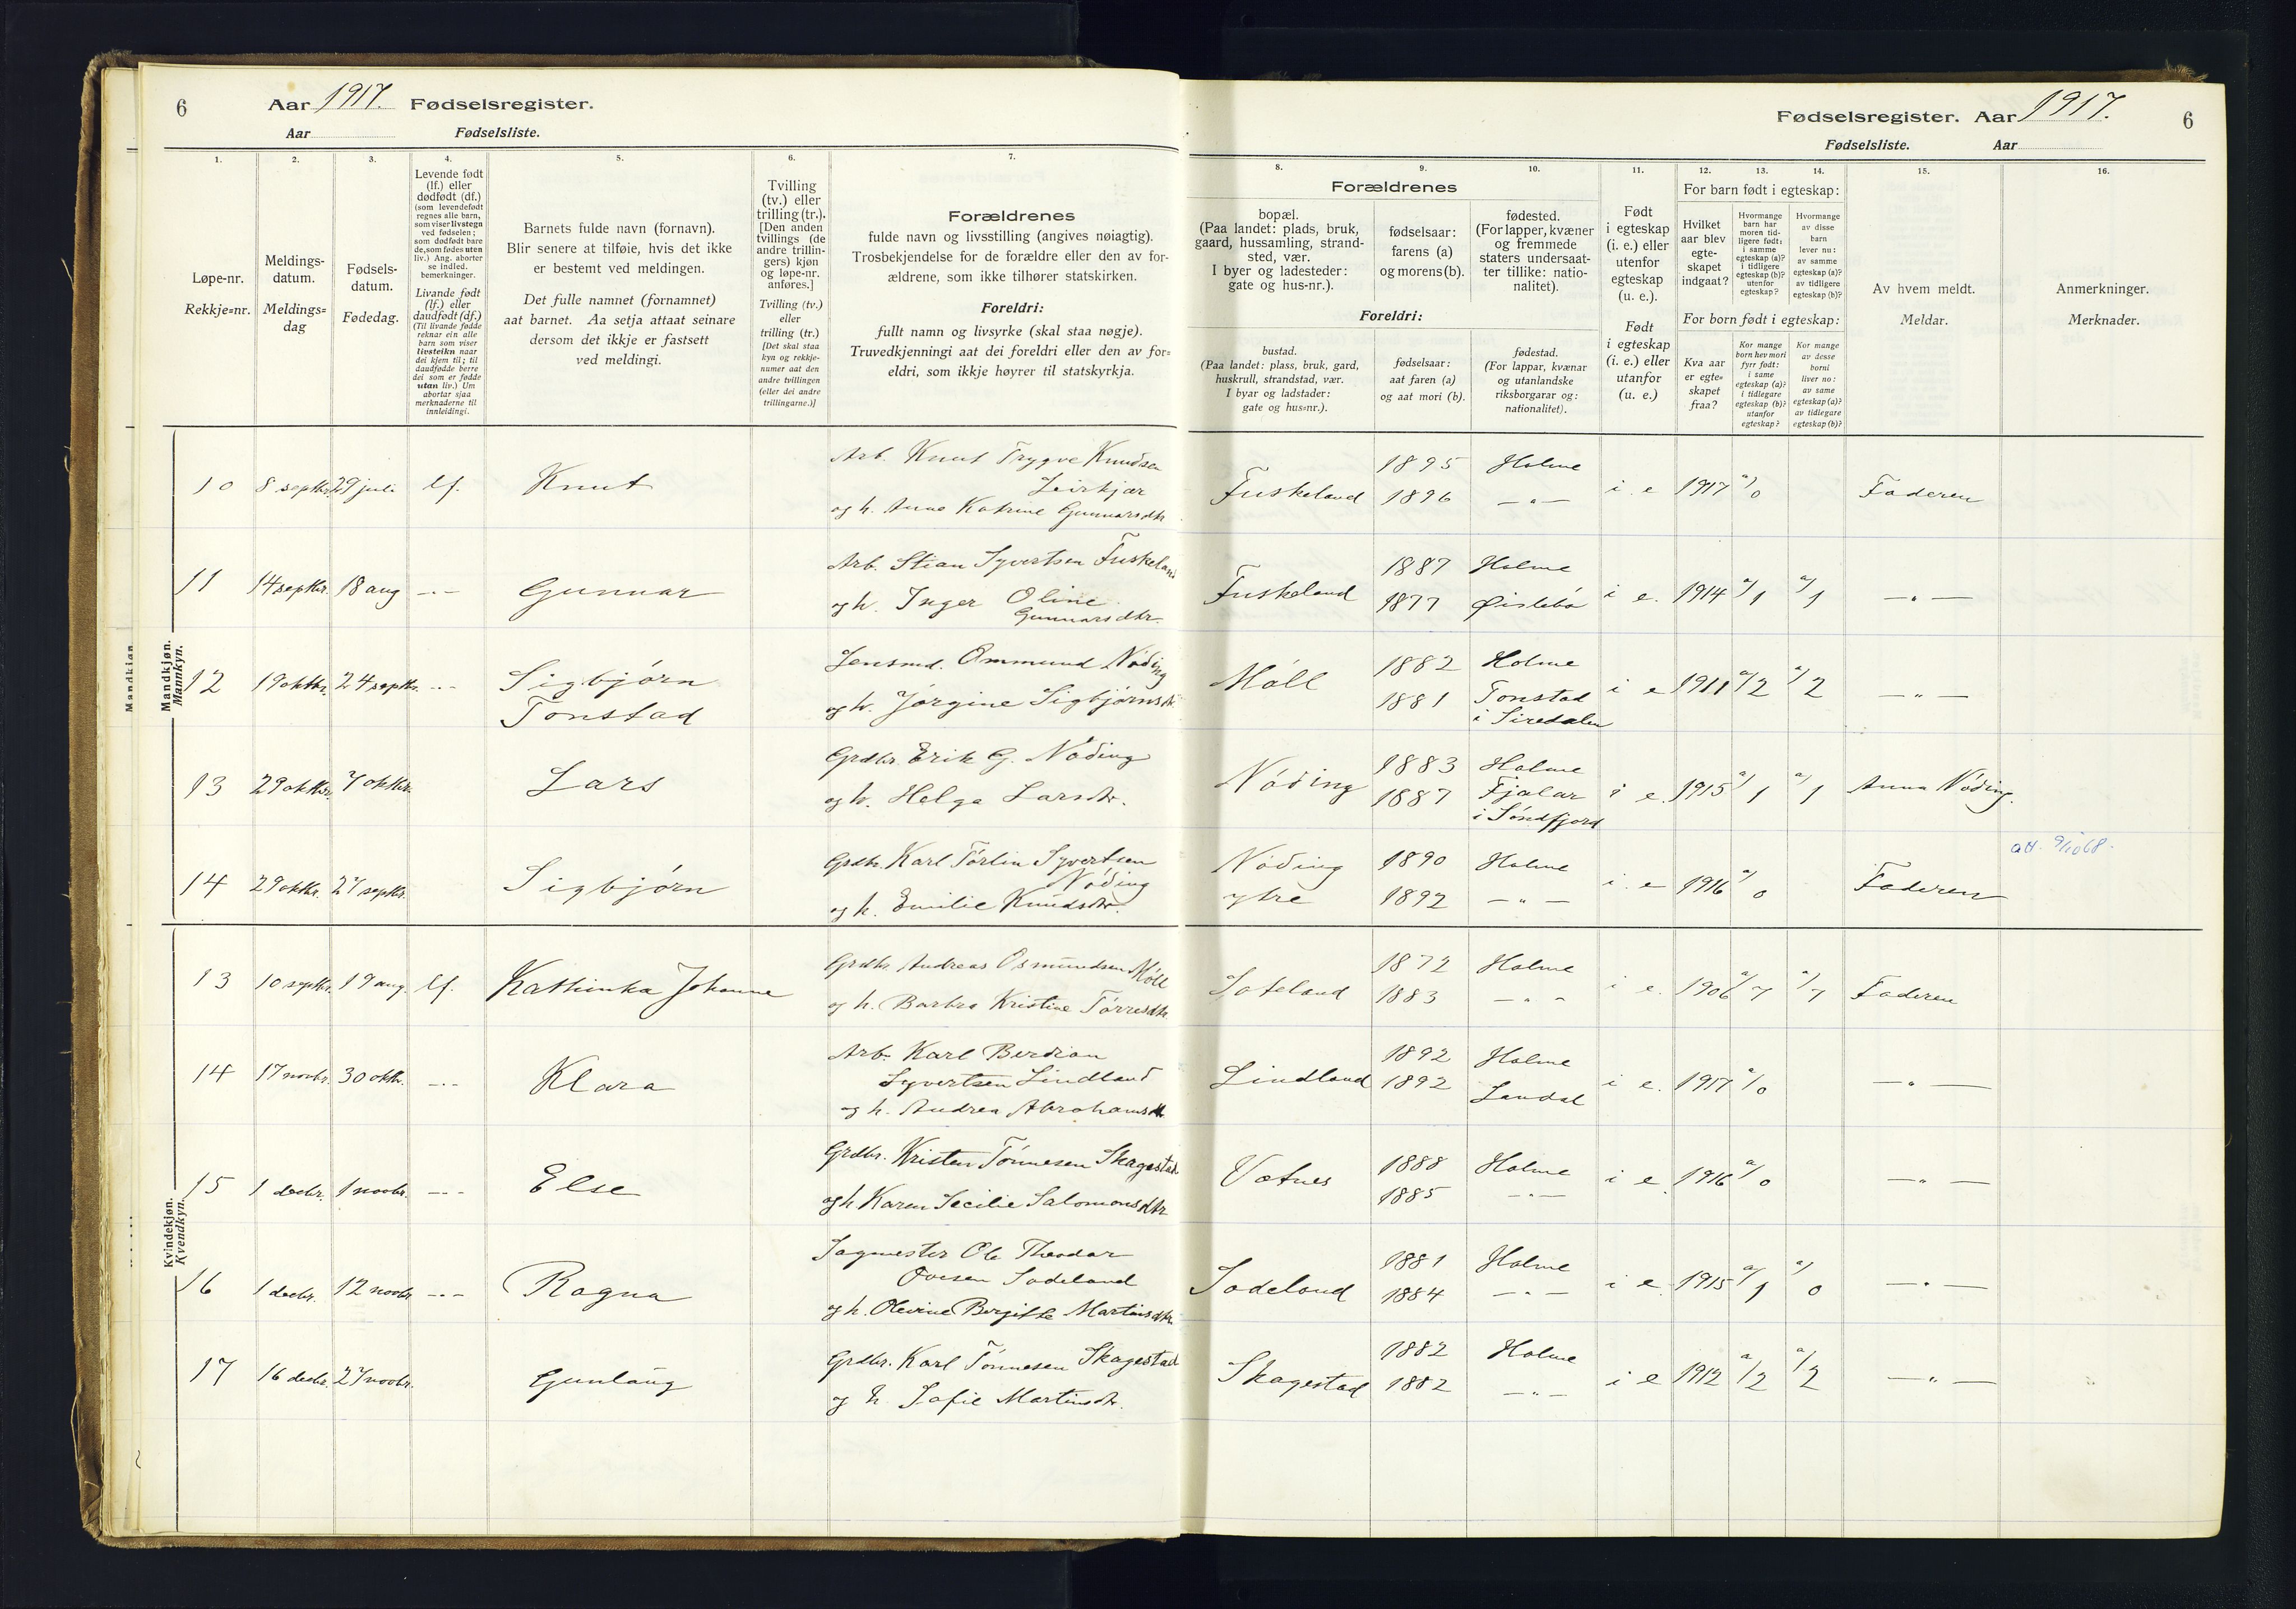 6 Aar 1917. Fødselsregister.
Aar Fødselsliste.
Fødselsregister. Aar 1917. 6
Fødselsliste. Aar
1. 2. 3. 4. 5. 6. 7.
8. 9. 10. 11. 12. 13. 14. 15. 16.
Løpe-nr.
Rekkje=nr.
Meldings-
datum.
Meldings=
dag
Fødsels-
datum.
Fødedag.
Levende født
(lf.) eller
dødfødt (df.)
(som levendefødt
regnes alle barn,
som viser livstegn
ved fødselen;
som dødfødt bare
de, som fødes uten
liv.) Ang. aborter
se indled.
bemerkninger.
Livande født
(lf.) eller
daudfødt (df.)
(Til livande fødde
reknar ein alle
barn som viser
livsteikn naar
dei kjem til; til
daudfødde berre
dei som er fødde
utan liv.) Um
abortar sjaa
merknaderne til
innleidingi.
Barnets fulde navn (fornavn).
Blir senere at tilføie, hvis det ikke
er bestemt ved meldingen.
Det fulle namnet (fornamnet)
aat barnet. Aa setja attaat seinare
dersom det ikkje er fastsett
ved meldingi.
Tvilling
(tv.) eller
trilling (tr.).
[Den anden
tvillings (de
andre trillin-
gers) kjøn
og løpe-nr.
anføres.]
Tvilling (tv.)
eller
trilling (tr.)
[Det skal staa
kyn og rekkje-
numer aat den
andre tvillingen
(eller dei andre
trillingarne.)]
Forældrenes
fulde navn og livsstilling (angives nøiagtig).
Trosbekjendelse for de forældre eller den av for-
ældrene, som ikke tilhører statskirken.
Foreldri:
fullt namn og livsyrke (skal staa nøgje).
Truvedkjenningi aat dei foreldri eller den av for=
eldri, som ikkje høyrer til statskyrkja.
Forældrenes
bopæl.
(Paa landet: plads, bruk,
gaard, hussamling, strand-
sted, vær.
I byer og ladesteder:
gate og hus-nr.).
fødselsaar:
farens (a)
og morens (b).
fødested.
(For lapper, kvæner
og fremmede
staters undersaat-
ter tillike: natio-
nalitet).
Foreldri:
bustad.
(Paa landet: plass, bruk, gard,
huskrull, strandstad, vær.
I byar og ladstader:
gate og hus=nr.).
fødselsaar:
aat faren (a)
og aat mori (b).
fødestad.
(For lappar, kvænar
og utanlandske
riksborgarar og:
nationalitet).
Født
i egteskap
(i. e.) eller
utenfor
egteskap
(u. e.).
Født
i egteskap
(i. e.) eller
utanfor
(u. e.)
For barn født i egteskap:
Hvilket
aar blev
egte-
skapet
indgaat?
Hvormange
barn har
moren tid-
ligere født:
i samme
egteskap (a)?
i tidligere
egteskap (b)?
utenfor
egteskap?
Hvormange
av disse
barn
lever nu:
av samme
egteskap (a)?
av tidligere
egteskap (b)?
For born født i egteskap:
Kva aar
er egte=
skapet
fraa?
Kor mange
born hev mori
fyrr født:
i same
egteskap (a)?
i tidlegare
egteskap (b)?
utanfor
egteskap?
Kor mange
av desse
borni
liver no:
av same
egteskap (a)?
av tidlegare
egteskap (b)?
Av hvem meldt.
Meldar.
Anmerkninger.
Merknader.
Mandkjøn.
Mannkyn.
10 8 septbr. 29 juli lf. Knut
Arb. Knut Trygve Knudsen
Leirkjær
og h. Anna Katrine Gunnarsdtr
Fuskeland 1895 1896 Holme —"— i. e 1917 a/0 Faderen
11 14 septbr. 18 aug —"— Gunnar
Arb. Stian Syvertsen Fuskeland
og h. Inger Oline
Gunnarsdtr.
Fuskeland 1887 1877 Holme Øislebø i e. 1914 a/1 a/1 —"—
12 19 oktbr. 24 septbr. —"— Sigbjørn
Tonstad
Lensmd. Ommund Nøding
og h. Jørgine Sigbjørnsdtr
Møll 1882 1881 Holme Tonstad
i Siredalen
i e 1911 a/2 a/2 —"—
13 29 oktbr. 7 oktbr. Lars
Grdbr. Erik G. Nøding
og h. Helga Larsdtr.
Nøding 1883 1887 Holme Fjalar
i Søndfjord
i e. 1915 a/1 a/1 Anna Nøding.
14 29 oktbr. 27 septbr. Sigbjørn
Grdbr. Karl Tørlin Syvertsen
Nøding
og h. Emilie Knudsdtr.
Nøding
ytre
1890 1892 Holme —"— i. e 1916 a/0 Faderen
att. 9/10 68.
Kvindekjøn.
Kvendkyn.
13 10 septbr. 19 aug. lf. Kathinka Johanne
Grdbr. Andreas Osmundsen Møll
og h. Barbra Kristine Tørresdtr
Soteland 1872 1883 Holme —"— i e. 1906 a/7 a/7 Faderen
14 17 novbr. 30 oktbr. —"— Klara
Arb. Karl Berdian
Syvertsen Lindland
og h. Andrea Abrahamsdtr
Lindland 1892 1892 Holme Laudal i e. 1917 a/0 —"—
15 1 decbr. 1 novbr. —"— Else
Grdbr. Kristen Tønnesen Skagestad
og h. Karen Secilie Salomonsdtr
Vatnes 1888 1885 Holme —"— i e 1916 a/0 —"—
16 1 decbr. 12 novbr —"— Ragna
Sagmester Ole Theodor
Ovesen Sodeland
og h. Olevine Bergitte Martinsdtr
Sodeland 1881 1884 Holme —"— i e 1915 a/1 a/0 —"—
17 16 decbr. 27 novbr. Gunlaug
Grdbr. Karl Tønnesen Skagestad
og h. Sofie Martinsdtr.
Skagestad 1882 1882 Holme —"— i e 1912 a/2 a/2 —"—